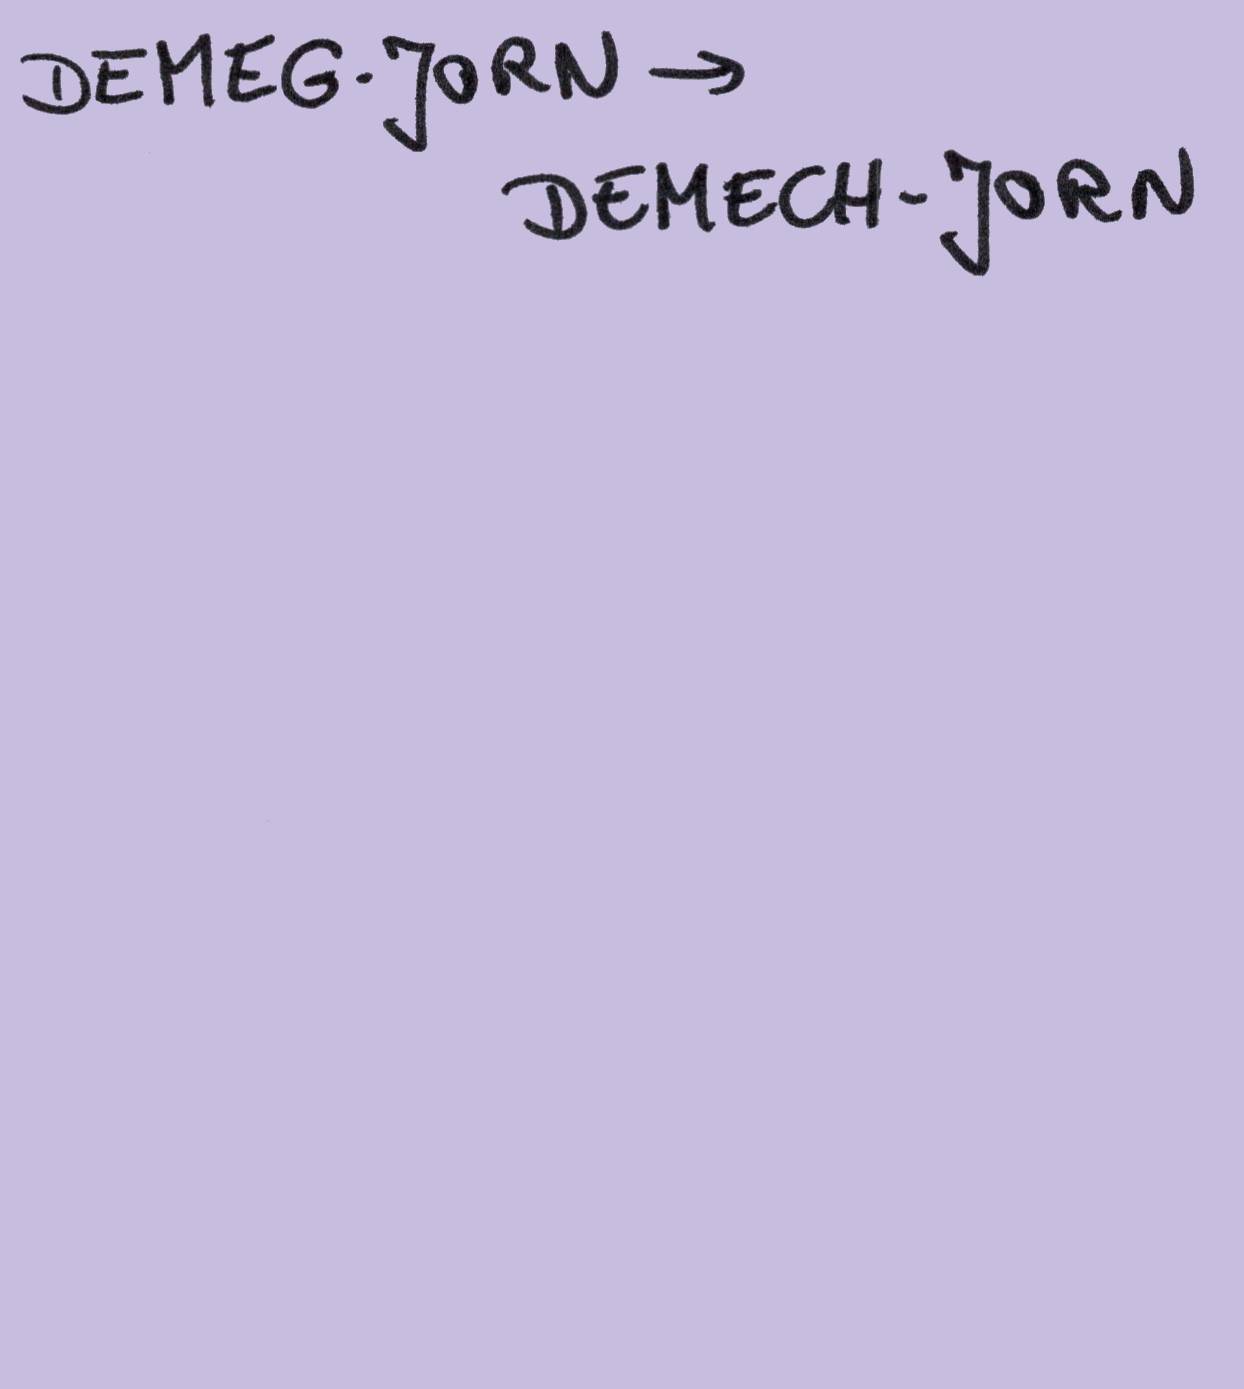 DEMEG-JORN →
DEMECH-JORN